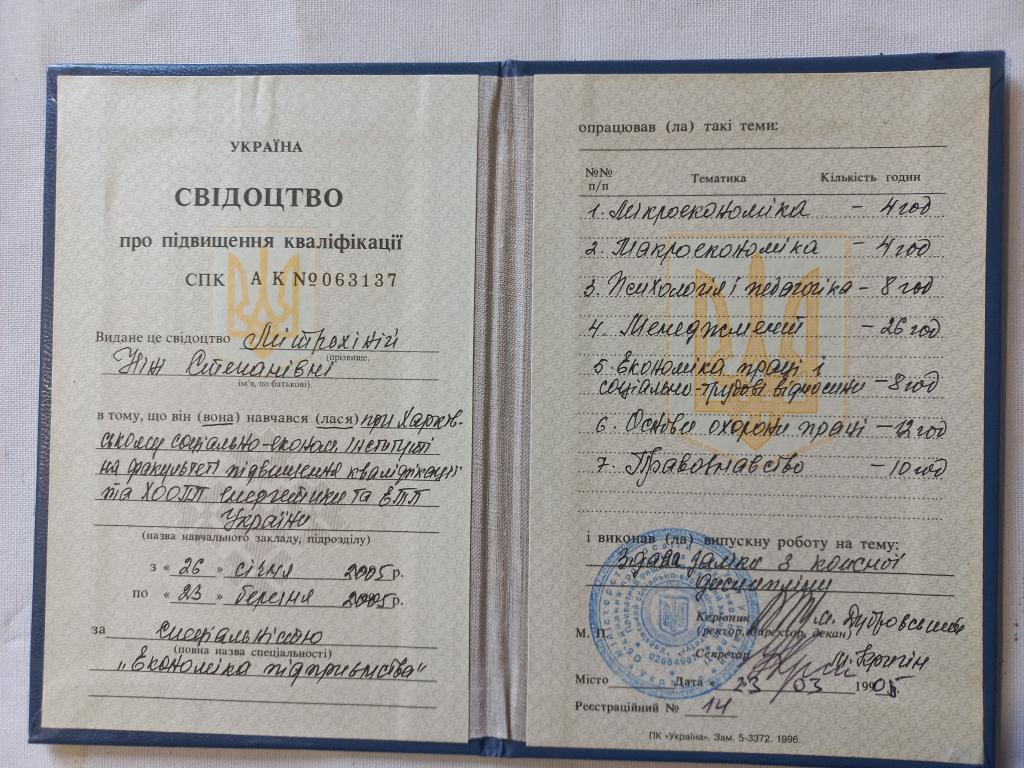 УКРАЇНА
СВІДОЦТВО
про підвищення кваліфікації
СПК А К №063137
Видане це свідоцтво Мітрохіній
(прізвище,
Ніні Степанівні
ім'я, по батькові)
в тому, що він (вона) навчався (лася) при Харків-
ському соціально-економ. інституті
на факультеті підвищення кваліфікації
та ХООПП енергетики та ЕТП
України
(назва навчального закладу, підрозділу)
з « 26 » січня 2005 р.
по « 23 » березня 2005 р.
за спеціальністю
(повна назва спеціальності)
„Економіка підприємства"
опрацював (ла) такі теми:
№№ п/п Тематика Кількість годин
1. Мікроекономіка – 4 год
2. Макроекономіка – 4 год
3. Психологія і педагогіка – 8 год
4. Менеджмент – 26 год
5 Економіка праці і
соціально-трудові відносини – 8 год
6. Основи охорони праці – 12 год
7. Правознавство – 10 год
і виконав (ла) випускну роботу на тему:
Здала заліки з кожної
дисципліни
Керівник
М. П. (ректор, директор, декан)
Секретар
Місто Дата « 23 / 03 1905 р.
Реєстраційний № 14
ПК «Україна». Зам. 5-3372. 1996.